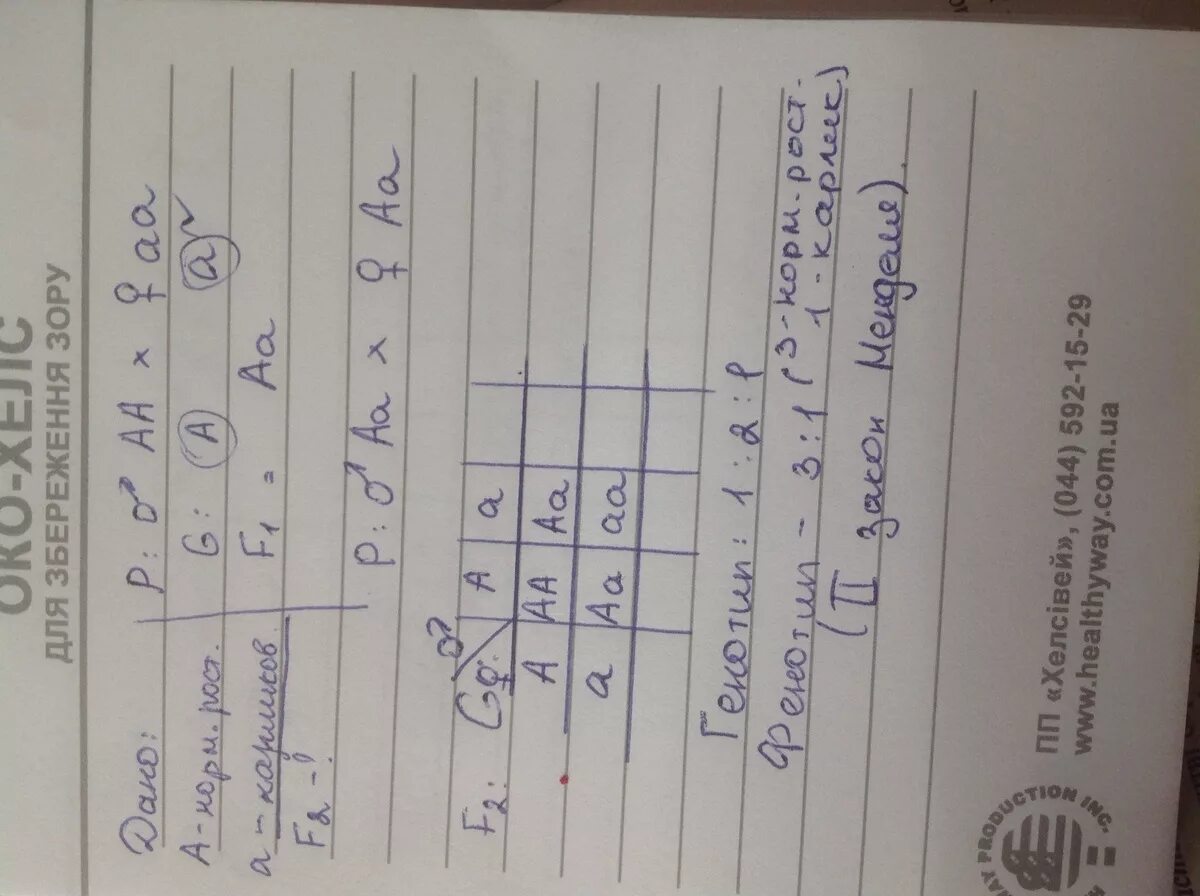 ОКО-ХЕЛС
ДЛЯ ЗБЕРЕЖЕННЯ ЗОРУ
Дано:
А - норм. рост.
а - карликов
F₂ - ?
P: ♂ AA × ♀ aa
G: A a
F₁ = Aa
P: ♂ Aa × ♀ Aa
F₂: G♀ ♂ A a
A AA Aa
a Aa aa
Генотип: 1 : 2 : 1
Фенотип - 3:1 (3 - норм. рост.
1 - карлик)
(II закон Менделя).
ПП «Хелсівей», (044) 592-15-29
www.healthyway.com.ua
AY PRODUCTION INC.